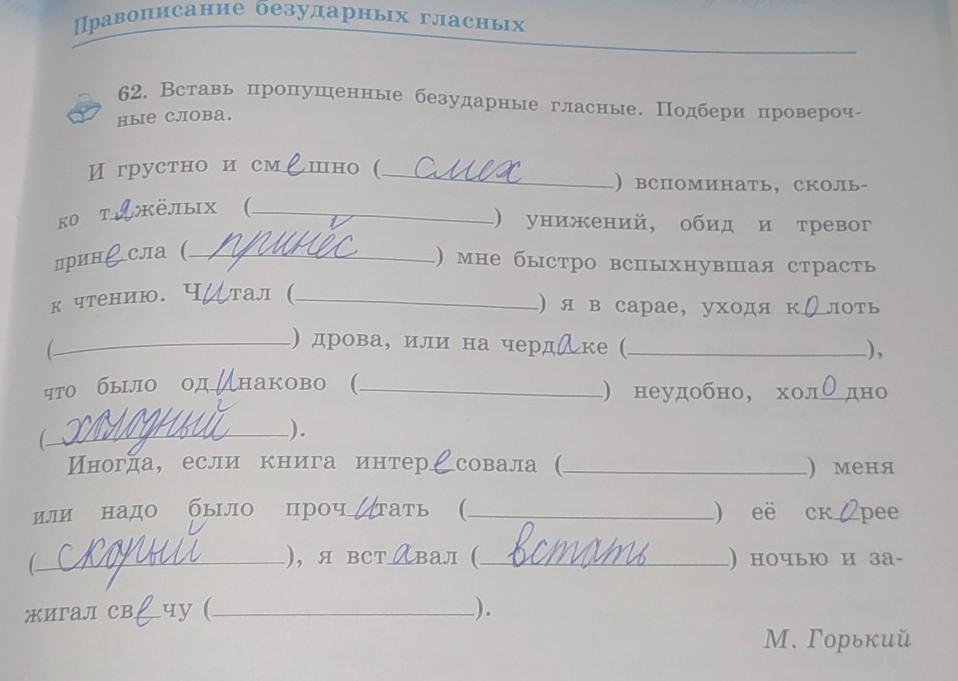 Правописание безударных гласных
62. Вставь пропущенные безударные гласные. Подбери провероч-
ные слова.
И грустно и смешно ( смех ) вспоминать, сколь-
ко тяжёлых ( ) унижений, обид и тревог
принесла ( принёс ) мне быстро вспыхнувшая страсть
к чтению. Читал ( ) я в сарае, уходя колоть
( ) дрова, или на чердаке ( ),
что было одинаково ( ) неудобно, холодно
( холодный ).
Иногда, если книга интересовала ( ) меня
или надо было прочитать ( ) её скорее
( скорый ), я вставал ( встать ) ночью и за-
жигал свечу ( ).
М. Горький